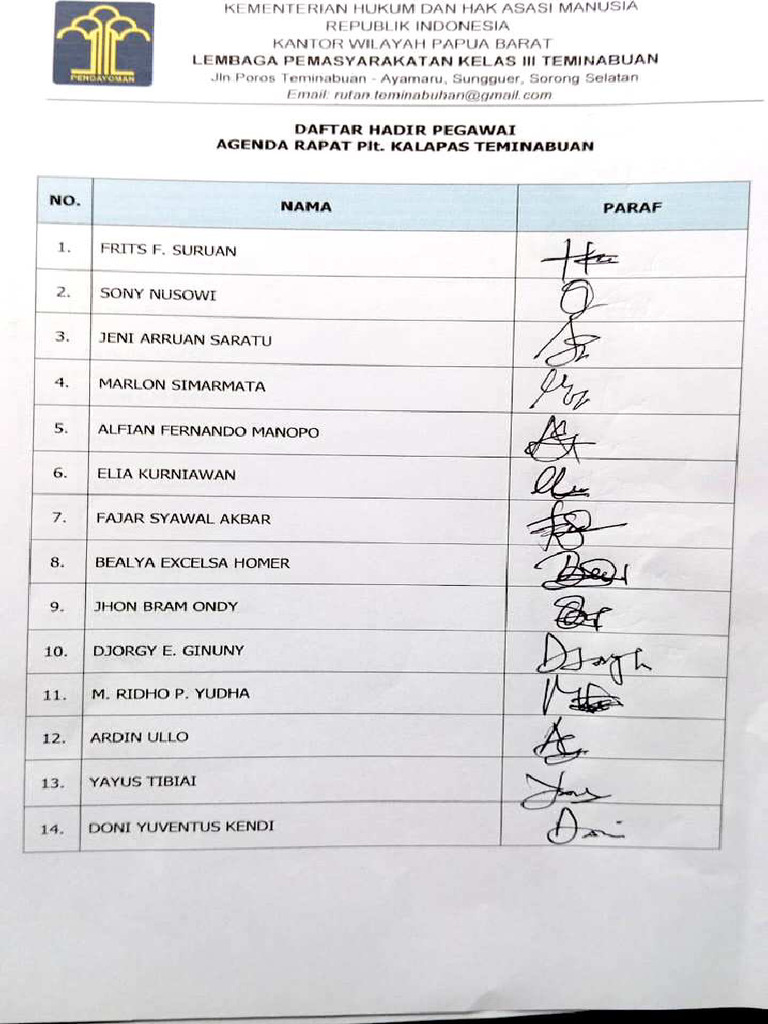 KEMENTERIAN HUKUM DAN HAK ASASI MANUSIA
REPUBLIK INDONESIA
KANTOR WILAYAH PAPUA BARAT
LEMBAGA PEMASYARAKATAN KELAS III TEMINABUAN
Jln Poros Teminabuan - Ayamaru, Sungguer, Sorong Selatan
Email: rutan.teminabuhan@gmail.com
PENGAYOMAN
DAFTAR HADIR PEGAWAI
AGENDA RAPAT Plt. KALAPAS TEMINABUAN
NO. NAMA PARAF
1. FRITS F. SURUAN
2. SONY NUSOWI
3. JENI ARRUAN SARATU
4. MARLON SIMARMATA
5. ALFIAN FERNANDO MANOPO
6. ELIA KURNIAWAN
7. FAJAR SYAWAL AKBAR
8. BEALYA EXCELSA HOMER
9. JHON BRAM ONDY
10. DJORGY E. GINUNY
11. M. RIDHO P. YUDHA
12. ARDIN ULLO
13. YAYUS TIBIAI
14. DONI YUVENTUS KENDI